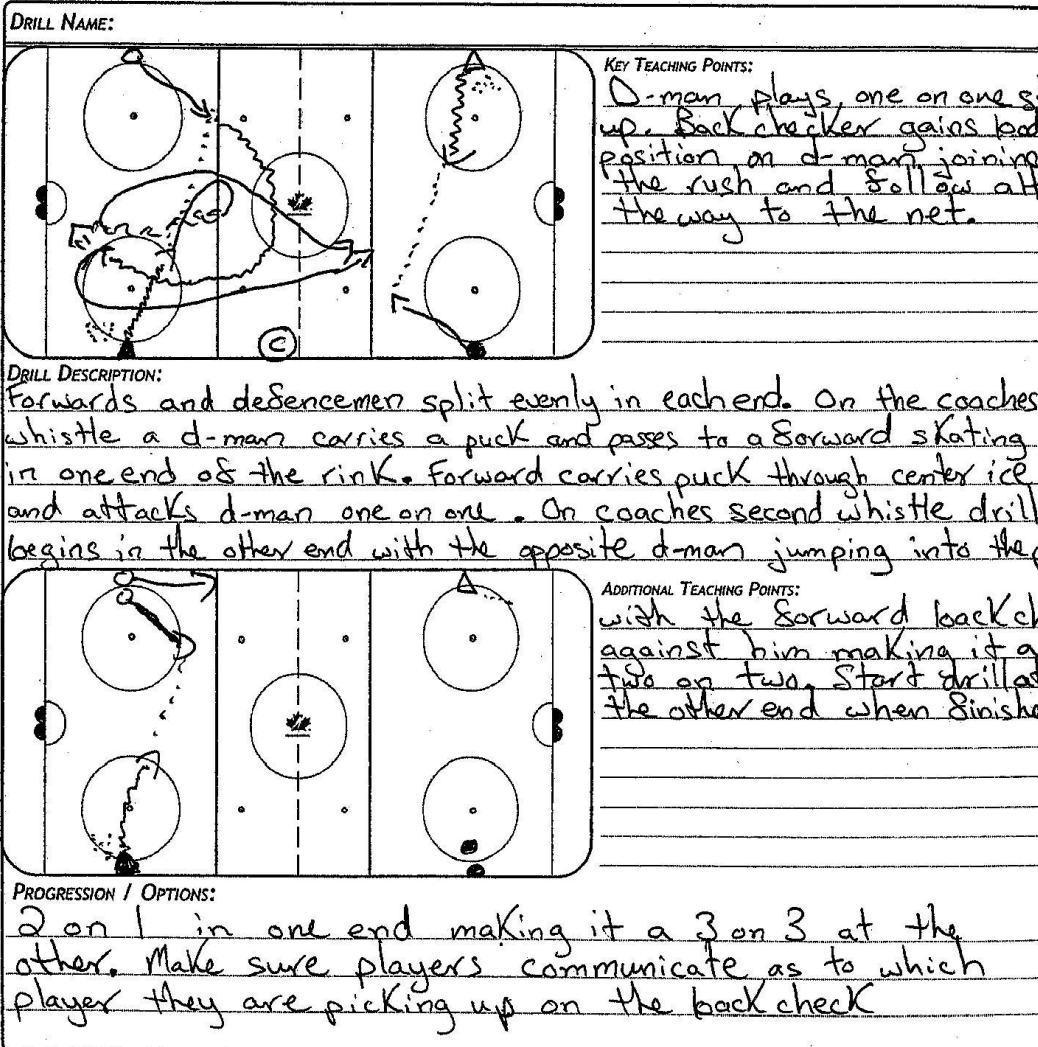 DRILL NAME:
KEY TEACHING POINTS:
D-man plays, one on one s
up. Back checker gains bod
position on d-man joining
the rush and follow all
the way to the net.
C
DRILL DESCRIPTION:
Forwards and defencemen split evenly in each end. On the coaches
whistle a d-man carries a puck and passes to a forward skating
in one end of the rink. Forward carries puck through center ice
and attacks d-man one on one. On coaches second whistle drill
begins in the other end with the opposite d-man jumping into the p
ADDITIONAL TEACHING POINTS:
with the forward backch
against him making it a
two on two. Start drill at
the other end when finishe
PROGRESSION / OPTIONS:
2 on 1 in one end making it a 3 on 3 at the
other. Make sure players communicate as to which
player they are picking up on the back check